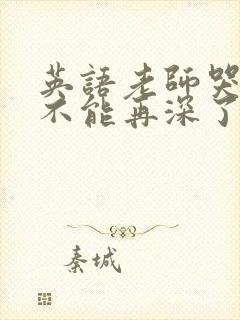 英語老師哭
不能再深了
秦城